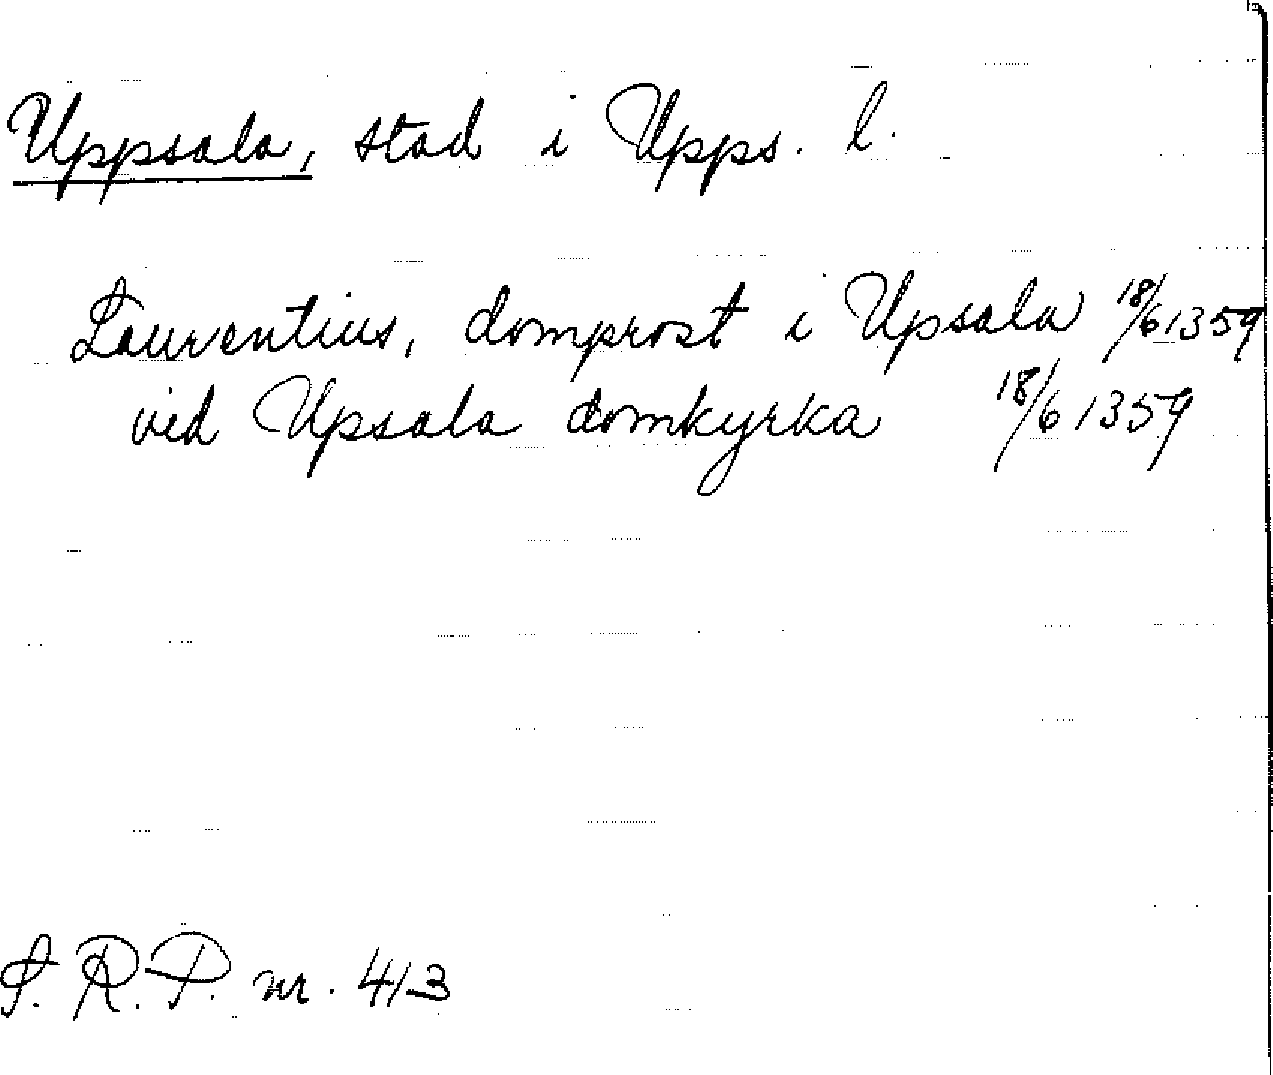 Uppsala, stad i Upps. l.
Laurentius, domprost i Upsala 18/6 1359
ved Upsala domkyrka 18/6 1359
S. R. P. nr. 413